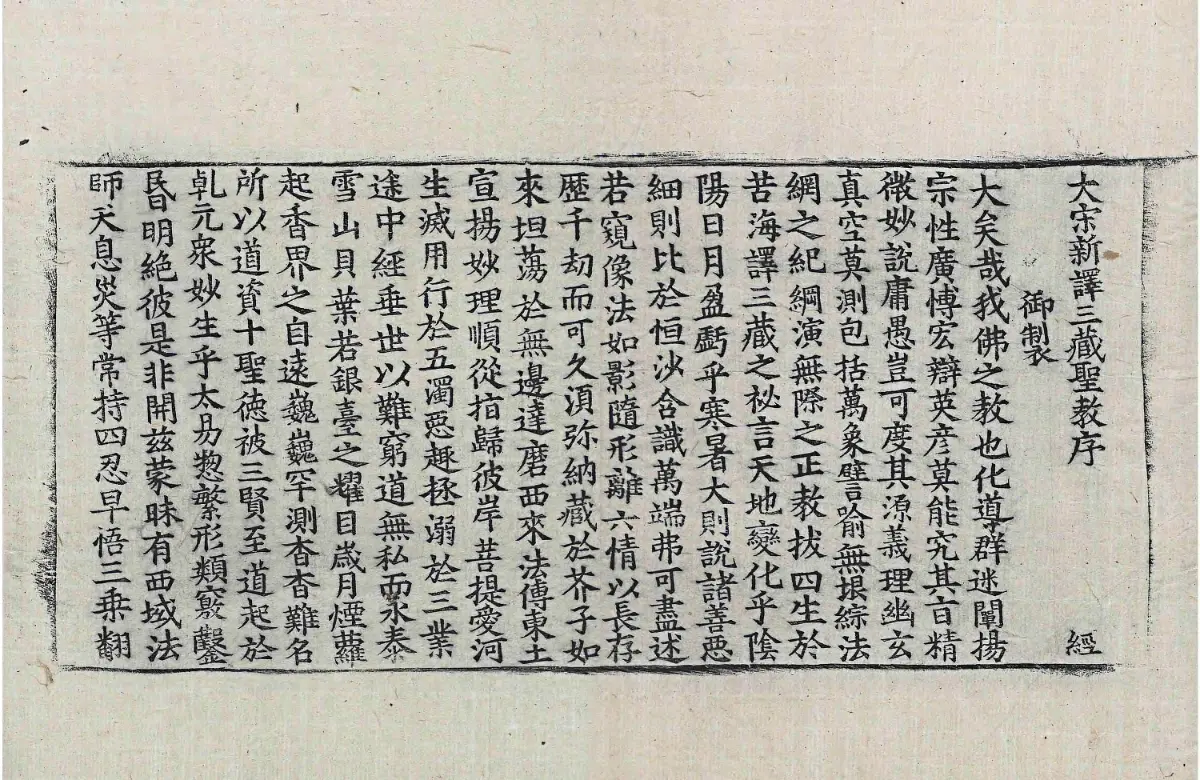 大宋新譯三藏聖教序
經
御製
大矣哉我佛之教也化導群迷闡揚
宗性廣博宏辯英彥莫能究其旨精
微妙說庸愚豈可度其源義理幽玄
真空莫測包括萬象譬喻無垠綜法
網之紀綱演無際之正教拔四生於
苦海譯三藏之祕言天地變化乎陰
陽日月盈虧乎寒暑大則說諸善惡
細則比於恒沙含識萬端弗可盡述
若窺像法如影隨形離六情以長存
歷千劫而可久須弥納藏於芥子如
來坦蕩於無邊達磨西來法傳東土
宣揚妙理順從指歸彼岸菩提愛河
生滅用行於五濁惡趣拯溺於三業
途中經垂世以難窮道無私而永泰
雪山貝葉若銀臺之耀日歲月煙蘿
起香界之自遠巍巍罕測杳杳難名
所以道資十聖德被三賢至道起於
乹元衆妙生乎太易惣繁形類竅鑿
昏明絕彼是非開茲蒙昧有西域法
師天息災等常持四忍早悟三乘翻